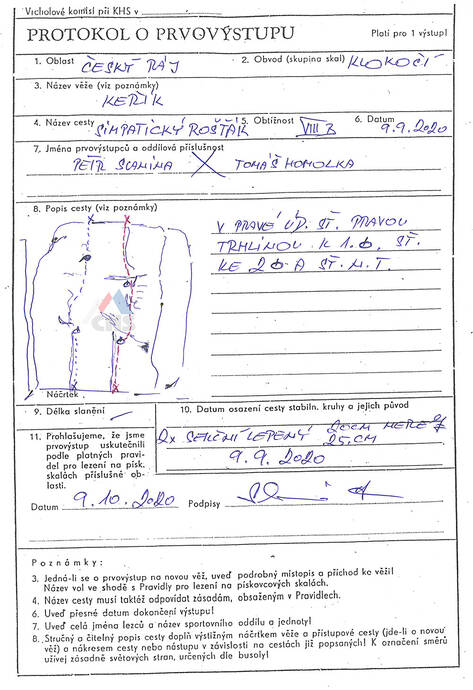 Vrcholové komisi při KHS v
PROTOKOL O PRVOVÝSTUPU
Platí pro 1 výstup!
1. Oblast ČESKÝ RÁJ
2. Obvod (skupina skal) KLOKOČÍ
3. Název věže (viz poznámky)
KEŘÍK
4. Název cesty SIMPATICKÝ ROŠŤÁK
5. Obtížnost VIII B
6. Datum 9.9.2020
7. Jména prvovýstupců a oddílová příslušnost
PETR SLANINA TOMÁŠ HOMOLKA
8. Popis cesty (viz poznámky)
V PRAVÉ ÚD. ST. PRAVOU
TRHLINOU K 1.Ó. ST.
KE 2 Ó A ST. N.T.
ČHS
Náčrtek
9. Délka slanění
10. Datum osazení cesty stabiln. kruhy a jejich původ
2x SEKČNÍ LEPENÝ 20CM
25.CM
9.9.2020
11. Prohlašujeme, že jsme
prvovýstup uskutečnili
podle platných pravi-
del pro lezení na písk.
skalách příslušné ob-
lasti.
Datum 9.10.2020 Podpisy
Poznámky:
3. Jedná-li se o prvovýstup na novou věž, uveď podrobný místopis a příchod ke věži!
Název vol ve shodě s Pravidly pro lezení na pískovcových skalách.
4. Název cesty musí taktéž odpovídat zásadám, obsaženým v Pravidlech.
6. Uveď přesné datum dokončení výstupu!
7. Uveď celá jména lezců a název sportovního oddílu a jednoty!
8. Stručný a čitelný popis cesty doplň výstižným náčrtkem věže a přístupové cesty (jde-li o novou
věž) a nákresem cesty nebo nástupu v závislosti na cestách již popsaných! K označení směrů
užívej zásadně světových stran, určených dle busoly!